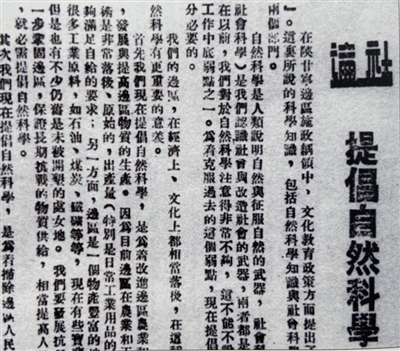 社論
提倡自然科學
在陝甘寧邊區施政綱領中,文化教育政策方面提出
』。這裏所說的科學知識,包括自然科學知識與社會科
兩個部門。
自然科學是人類說明自然與征服自然的武器,社會科
社會科學)是我們認識社會與改造社會的武器,兩者都是
在以前,我們對於自然科學注意得非常不夠,這不能不
工作中底弱點之一。爲着克服過去的這個弱點,現在提倡
分必要的。
我們的邊區,在經濟上、文化上都相當落後,在這
然科學有更重要的意義。
首先我們現在提倡自然科學,是爲着改進邊區農業
,發展與提高邊區物質的生產。因爲目前邊區在農業和
術是非常落後、原始的,出產量(特別是日常工業用品的
夠滿足自給的要求;另一方面,邊區是一個物產豐富的地
很多工業原料,如石油、煤炭、鐵礦等等,現在有些寶
但是也有不少仍舊是未被開墾的處女地。我們要發展抗
一步鞏固邊區,保證長期抗戰的物質供給,相當提高人
就必需提倡自然科學。
其次我們現在提倡自然科學,是爲着掃除邊區人民